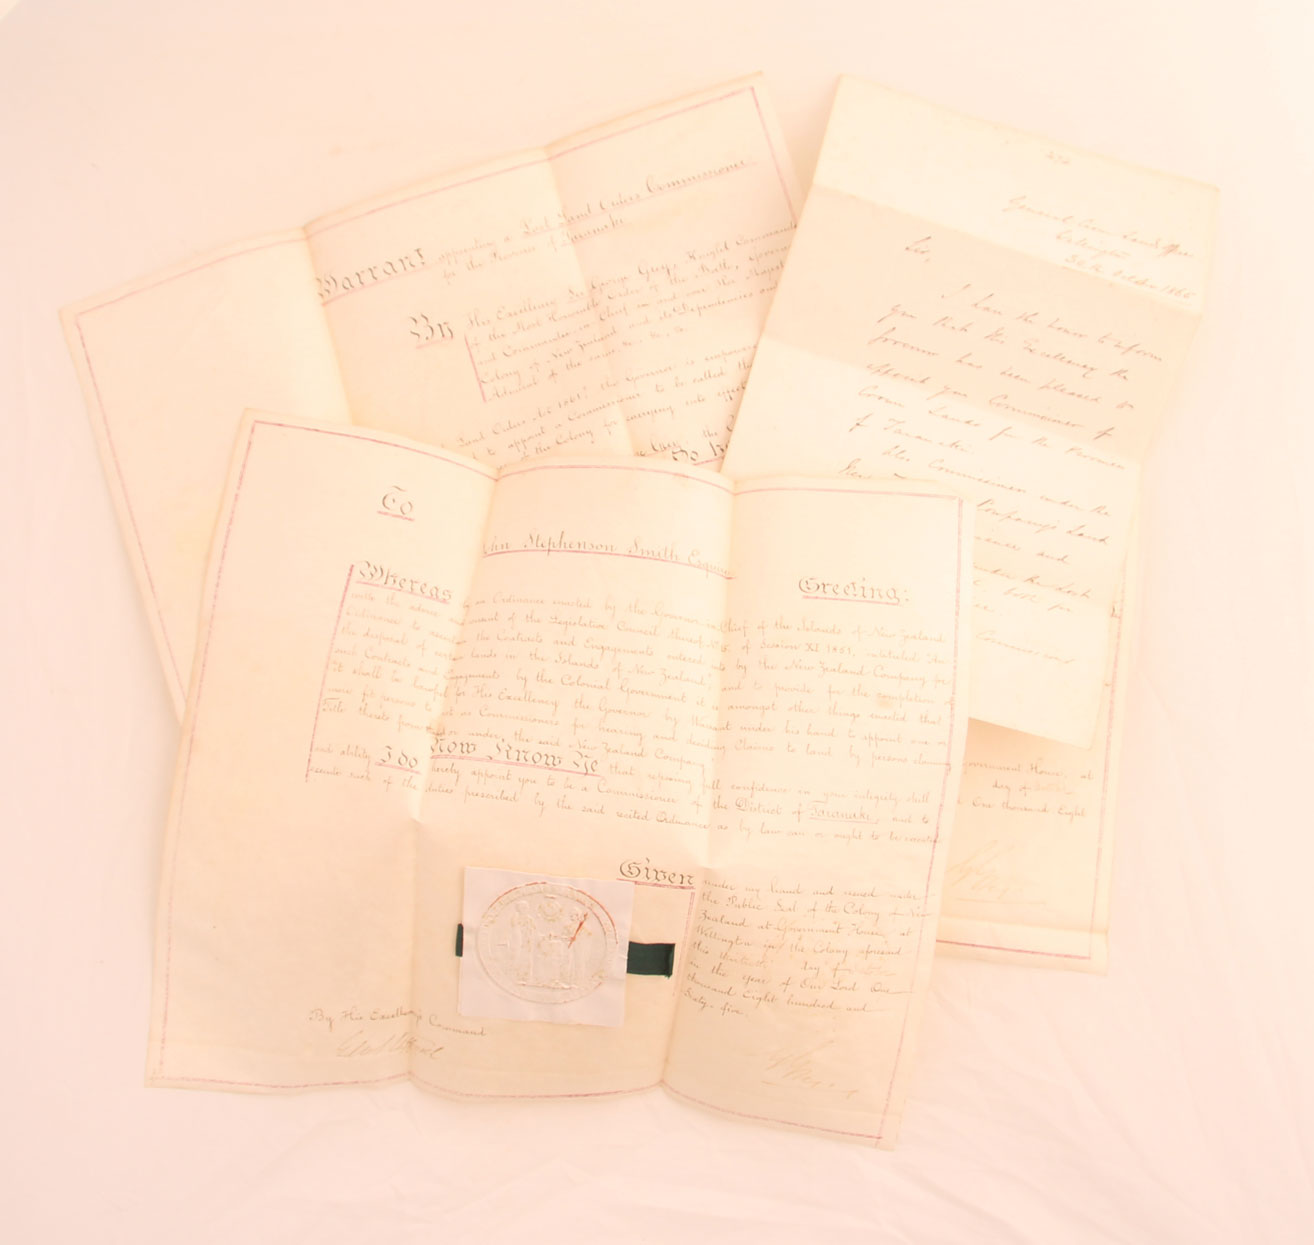 Warrant appointing a Land Orders Commissioner
for the Province of Taranaki
By His Excellency Sir George Grey, Knight Commander
of the Most Honorable Order of the Bath, Governor
and Commander in Chief in and over Her Majesty's
Colony of New Zealand and its Dependencies and
Admiral of the same &c., &c., &c.
Land Orders Act 1861" the Governor is empowered
to appoint a Commissioner to be called the
of the Colony for carrying into effect
the
General Crown Lands Office
October 1865
Sir,
I have the honor to inform
you that His Excellency the
Governor has been pleased to
appoint you Commissioner of
Crown Lands for the Province
of Taranaki
Also Commissioner under the
New
Company's Land
and
under the
for
Commissions
To
John Stephenson Smith Esquire
Greeting:
Whereas by an Ordinance enacted by the Governor in Chief of the Islands of New Zealand
with the advice and consent of the Legislative Council thereof No. 15. of Session XI 1851, intituled "An
Ordinance to the Contracts and Engagements entered into by the New Zealand Company for
the disposal of Lands in the Islands of New Zealand", and to provide for the completion of
such Contracts and Engagements by the Colonial Government it is amongst other things enacted that
it shall be lawful for His Excellency the Governor by Warrant under his hand to appoint one or
more fit persons to act as Commissioners for hearing and deciding Claims to land by persons claiming
Title thereto from or under the said New Zealand Company
Now Know Ye that reposing full confidence in your integrity skill
and ability I do hereby appoint you to be a Commissioner of the District of Taranaki, and to
execute such of the duties prescribed by the said recited Ordinance as by law can or ought to be executed
Given under my hand and issued under
the Public Seal of the Colony of New
Zealand at Government House, at
Wellington in the Colony aforesaid
this thirtieth day of
in the year of Our Lord One
thousand Eight hundred and
Sixty five.
By His Excellency's Command
Government House, at
day of
One thousand Eight